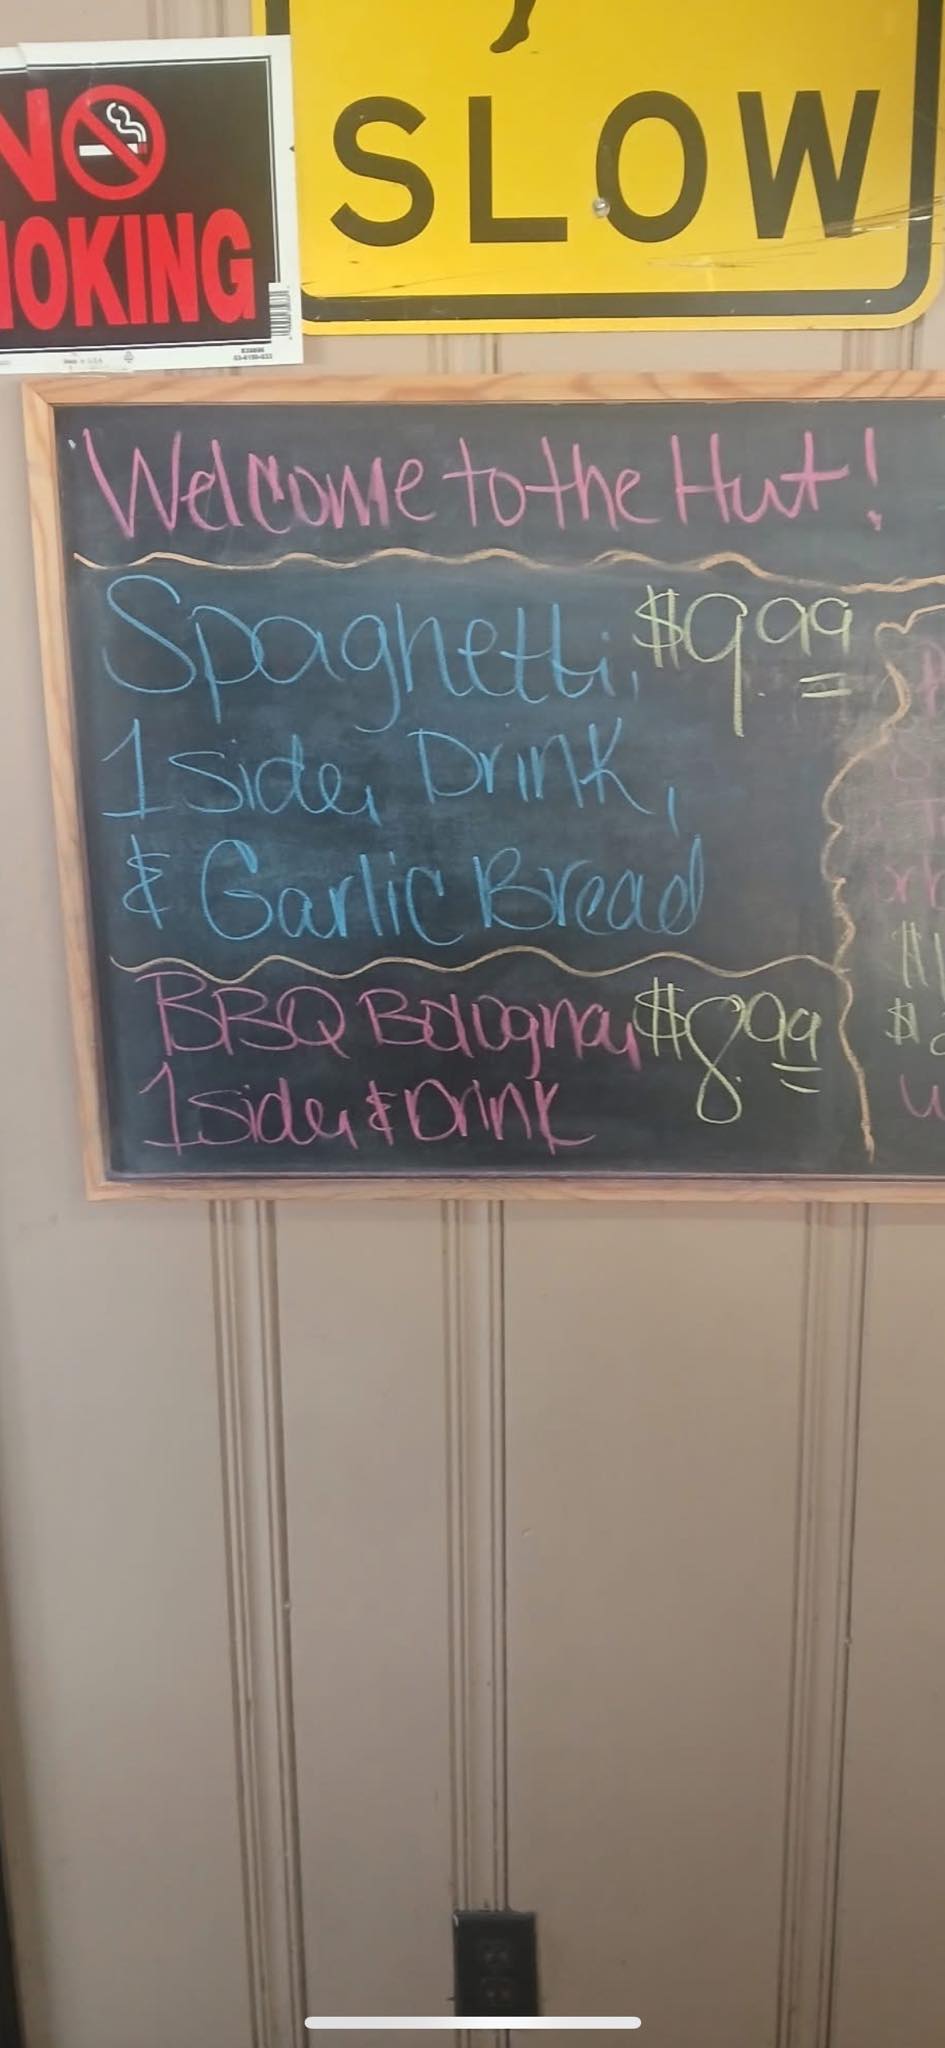 NO
MOKING
SLOW
Welcome to the Hut!
Spaghetti, $9.99
1 side, Drink,
& Garlic Bread
BBQ Bologna, $8.99
1 side, & Drink